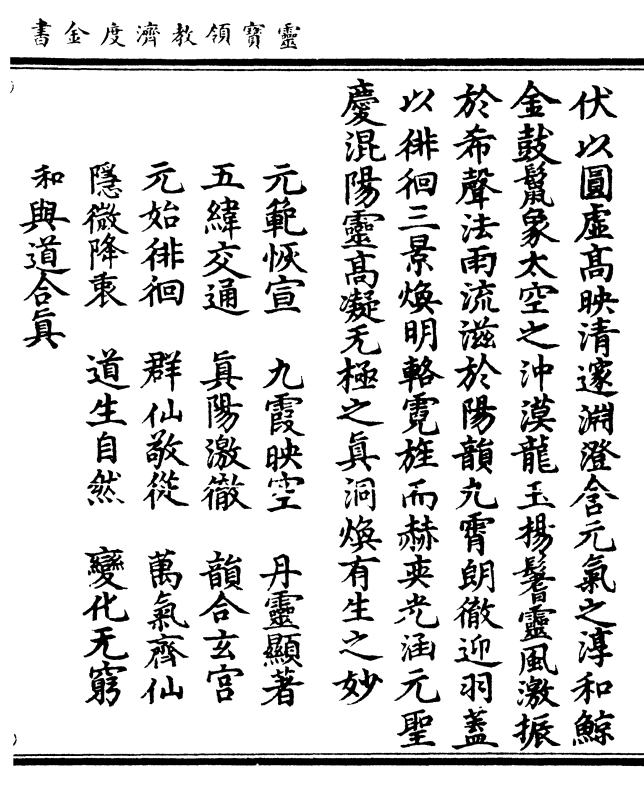 靈寶領教濟度金書
伏以圓虛高映清邃淵澄含元氣之淳和鯨
金鼓鬣象太空之沖漠龍玉揚鬐靈風激振
於希聲法雨流滋於陽韻九霄朗徹迎羽蓋
以徘徊三景煥明輅霓旌而赫奕光涵元聖
慶混陽靈高凝无極之真洞煥有生之妙
元範恢宣 九霞映空 丹靈顯著
五緯交通 真陽激徹 韻合玄宮
元始徘徊 群仙敬從 萬氣齊仙
隱微降衷 道生自然 變化无窮
和與道合真